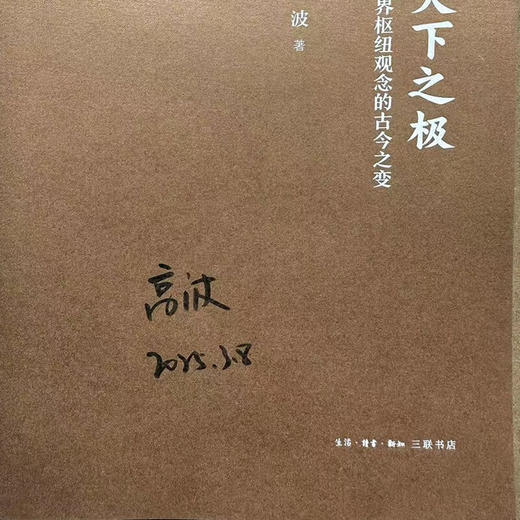 天下之极
界枢纽观念的古今之变
波 著
高波
2025.3.8
生活·读书·新知 三联书店